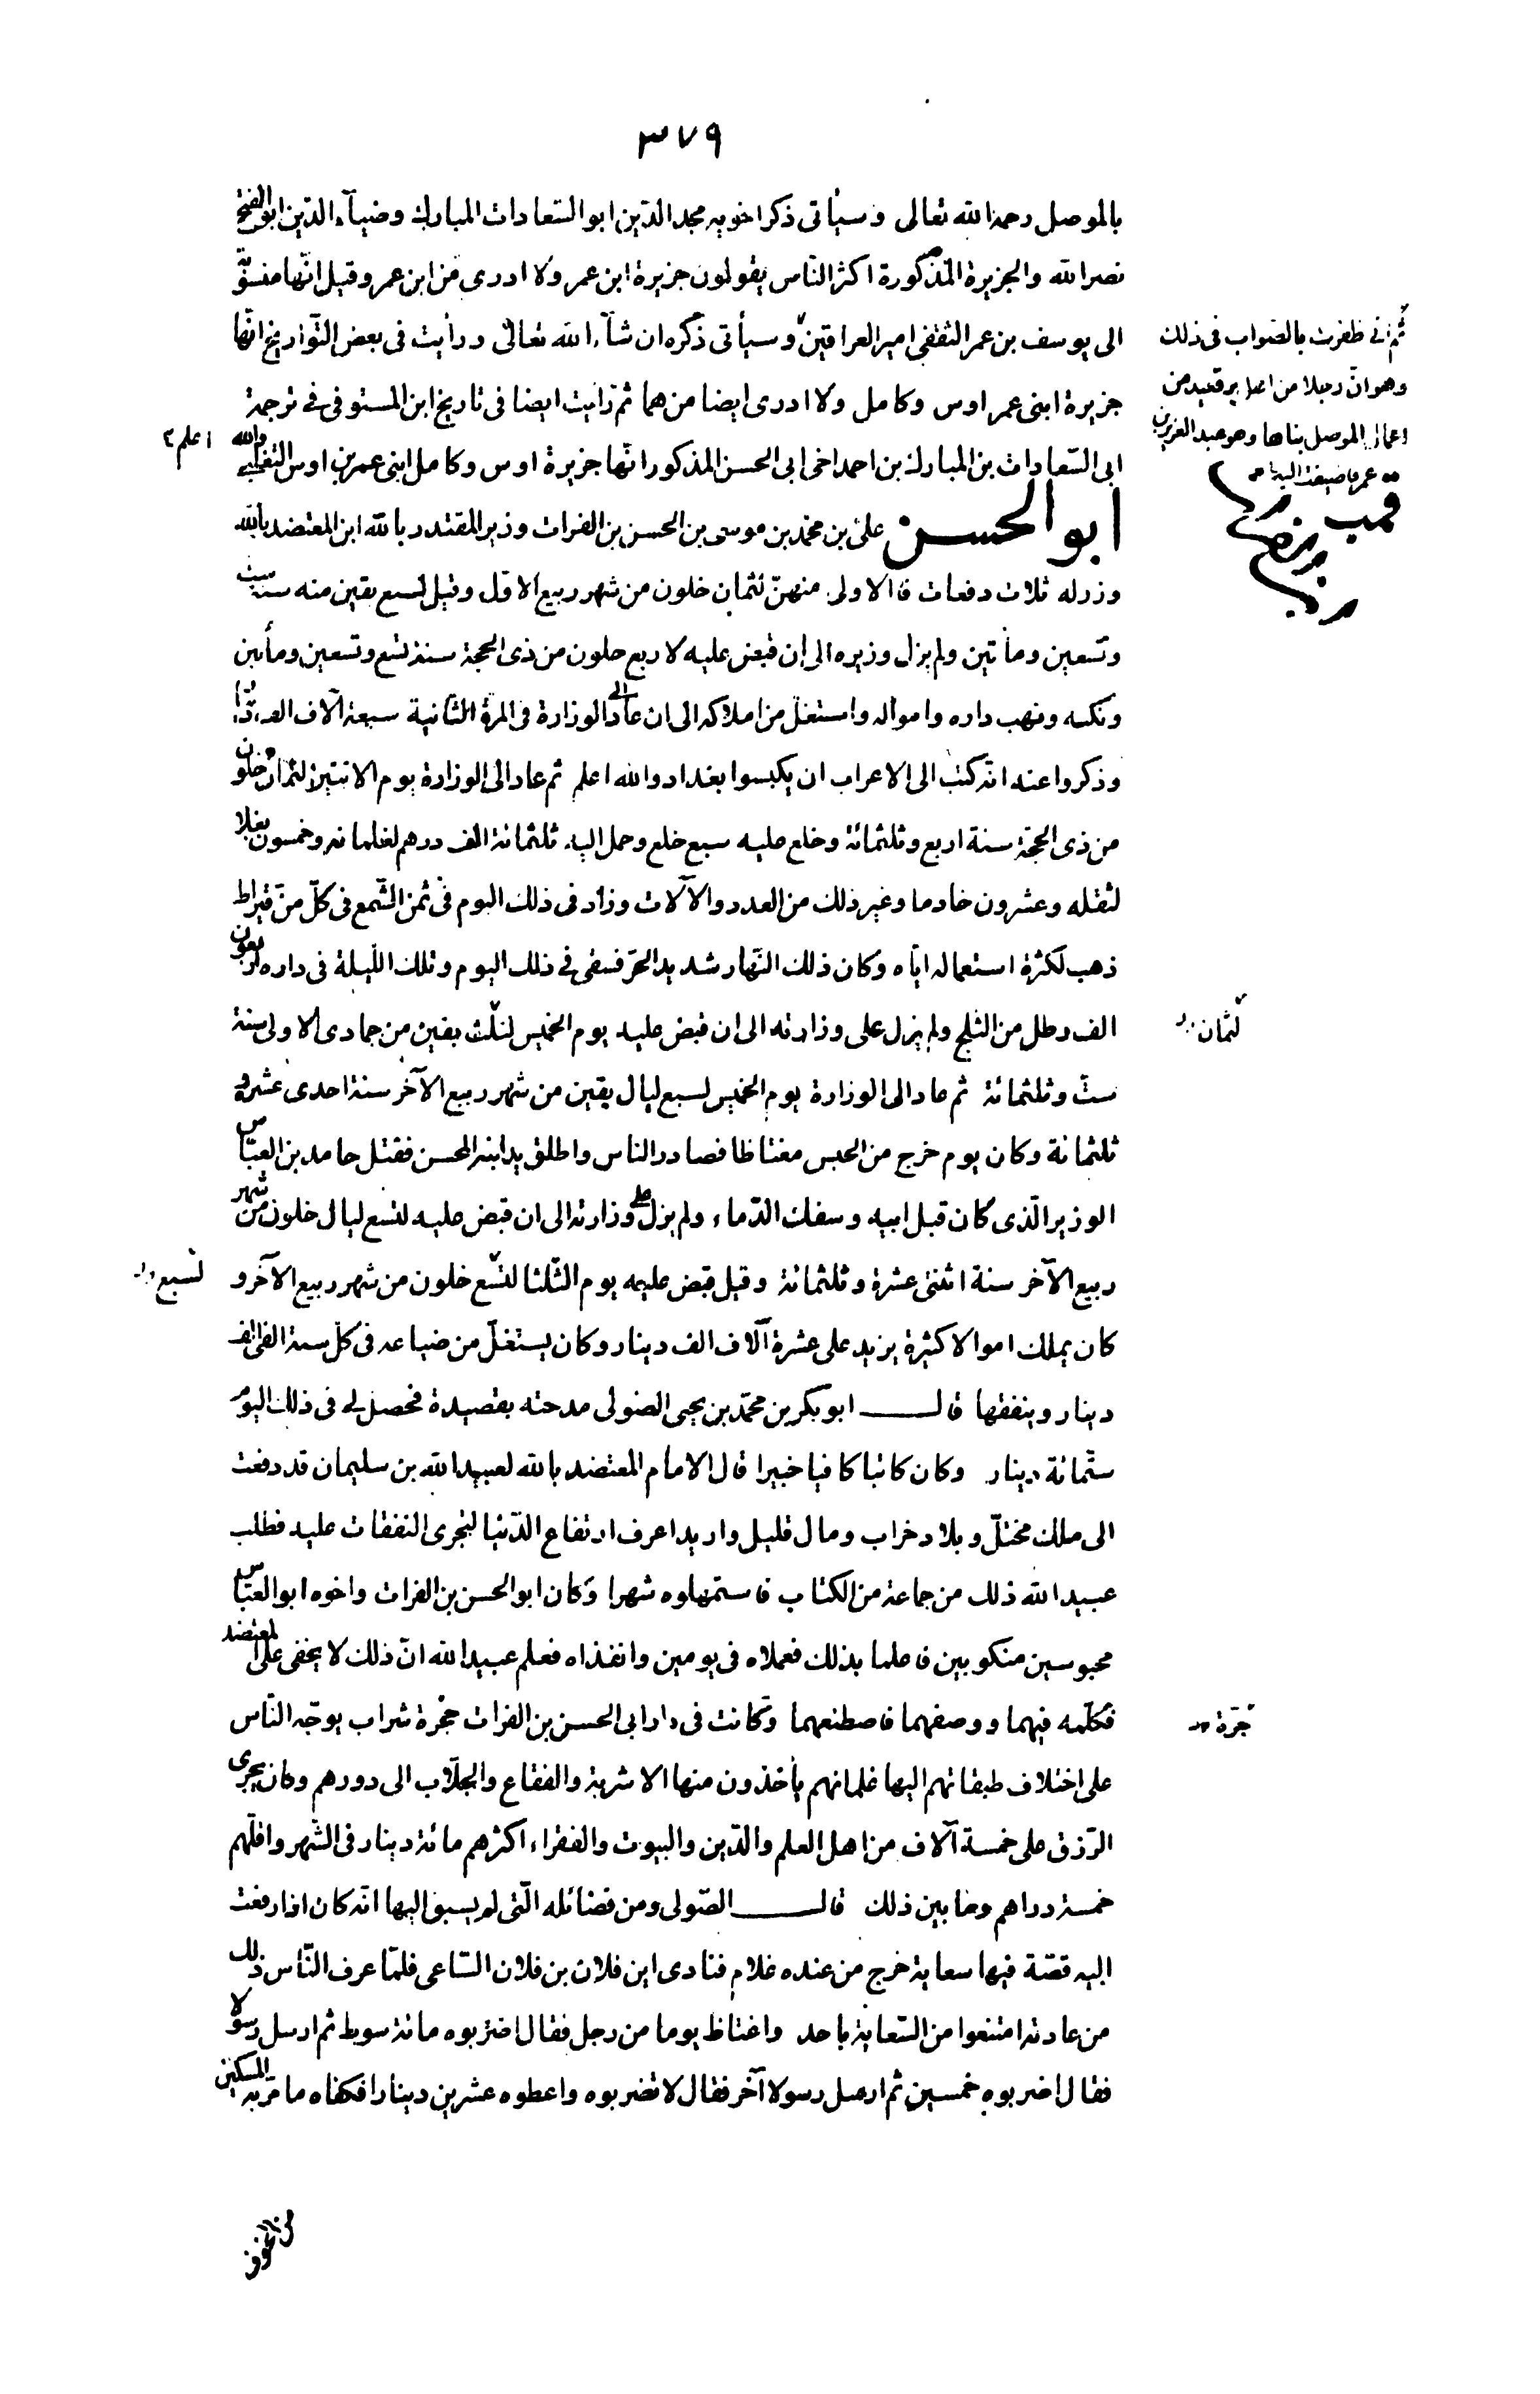 ٣٧٩
بالموصل رحمه الله تعالى وسيأتى ذكر اخويه مجد الدّين ابو السّعادات المبارك وضيآء الدّين ابو الفتح
نصر الله والجزيرة المذكورة اكثر النّاس يقولون جزيرة ابن عمر ولا ادرى من ابن عمر وقيل انّها منسوبة
الى يوسف بن عمر الثقفى امير العراقين وسيأتى ذكره ان شآء الله تعالى ورأيت فى بعض التّواريخ انّها
ثم انى ظفرت بالصّواب فى ذلك
وهو انّ رجلا من اهل برقعيد من
اعمال الموصل بناها وهو عبد العزيز بن
عمر فاضيفت اليه
جزيرة ابنى عمر اوس وكامل ولا ادرى ايضا من هما ثم رأيت ايضا فى تاريخ ابن المستوفى فى ترجمة
ابى السّعادات بن المبارك بن احمد اخى ابى الحسن المذكور انّها جزيرة اوس وكامل ابنى عمر بن اوس التغلبى والله
اعلم ٢
ابو الحسن على بن محمّد بن موسى بن الحسن بن الفرات وزير المقتدر بالله ابن المعتضد بالله
وزر له ثلاث دفعات فالاولى منهنّ لثمان خلون من شهر ربيع الاوّل وقيل لسبع بقين منه سنة ست
وتسعين ومأتين ولم يزل وزيره الى ان قبض عليه لاربع خلون من ذى الحجة سنة تسع وتسعين ومأتين
ونكبه ونهب داره وامواله واستغلّ من املاكه الى ان عاد الى الوزارة فى المرة الثانية سبعة آلاف الف دينار
وذكروا عنه انّه كتب الى الاعراب ان يكبسوا بغداد والله اعلم ثم عاد الى الوزارة يوم الاثنين لثمان خلون
من ذى الحجّة سنة اربع وثلثمائة وخلع عليه سبع خلع وحمل اليه ثلثمائة الف درهم لغلمانه وخمسون بغلا
لثقله وعشرون خادما وغير ذلك من العدد والآلات وزاد فى ذلك اليوم فى ثمن الشّمع فى كلّ منّ قيراط
ذهب لكثرة استعماله ايّاه وكان ذلك النّهار شديد الحرّ فسقى فى ذلك اليوم وتلك اللّيلة فى داره اربعون
الف رطل من الثلج ولم يزل على وزارته الى ان قبض عليه يوم الخميس لثلث بقين من جمادى الاولى سنة
لثمان
ستّ وثلثمائة ثم عاد الى الوزارة يوم الخميس لسبع ليال بقين من شهر ربيع الآخر سنة احدى عشرة و
ثلثمائة وكان يوم خرج من الحبس مغتاظا فصادر الناس واطلق يد ابنه المحسن فقتل حامد بن العبّاس
الوزير الّذى كان قبل ابيه وسفك الدّماء ولم يزل على وزارته الى ان قبض عليه لتسع ليال خلون من شهر
ربيع الآخر سنة اثنتى عشرة وثلثمائة وقيل قبض عليه يوم الثّلثا لتسع خلون من شهر ربيع الآخر و
لسبع
كان يملك اموالا كثيرة يزيد على عشرة آلاف الف دينار وكان يستغلّ من ضياعه فى كلّ سنة الفى الف
دينار وينفقها قال ابو بكر بن محمّد بن يحيى الصّولى مدحته بقصيدة فحصل لى فى ذلك اليوم
ستّمائة دينار وكان كاتبا كافيا خبيرا قال الامام المعتضد بالله لعبيد الله بن سليمان قد دفعت
الى ملك مختلّ وبلاد خراب ومال قليل واريد اعرف ارتفاع الدّنيا لتجرى النّفقات عليه فطلب
عبيد الله ذلك من جماعة من الكتاب فاستمهلوه شهرا وكان ابو الحسن بن الفرات واخوه ابو العبّاس
محبوسين منكوبين فاعلما بذلك فعملاه فى يومين وانفذاه فعلم عبيد الله انّ ذلك لا يخفى على المعتضد
فكلّمه فيهما ووصفهما فاصطنعهما وكانت فى دار ابى الحسن بن الفرات حجرة شراب يوجّه النّاس
جرّة
على اختلاف طبقاتهم اليها غلمانهم يأخذون منها الاشربة والفقاع والجلّاب الى دورهم وكان يجرى
الرّزق على خمسة آلاف من اهل العلم والدّين والبيوت والفقراء اكثرهم مائة دينار فى الشّهر واقلّهم
خمسة دراهم وما بين ذلك قال الصّولى ومن فضائله الّتى لم يسبق اليها انّه كان اذا رفعت
اليه قصّة فيها سعاية خرج من عنده غلام فنادى اين فلان بن فلان السّاعى فلمّا عرف النّاس ذلك
من عادته امتنعوا من السّعاية باحد واغتاظ يوما من رجل فقال اضربوه مائة سوط ثم ارسل رسولا
فقال اضربوه خمسين ثم ارسل رسولا آخر فقال لا تضربوه واعطوه عشرين دينارا فكفاه ما مرّ به المسكين